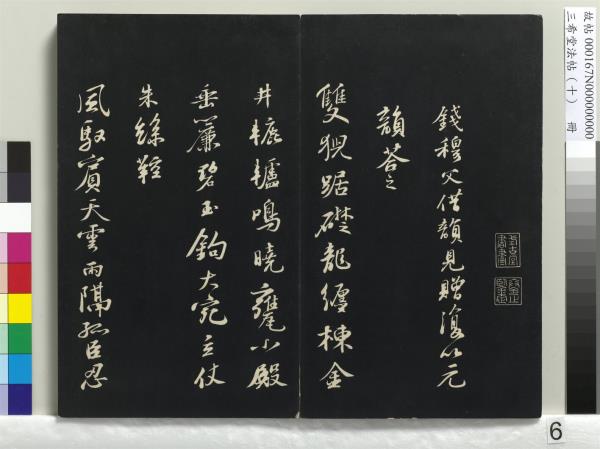 故帖 000167N000000000
三希堂法帖(十) 冊
錢穆父借韻見贈復以元
韻荅之
雙猊踞礎龍纏棟金
井轆轤鳴曉甕小殿
垂簾碧玉鉤大宛立仗
朱絲鞚
風馭賓天雲雨隔孤臣忍
6